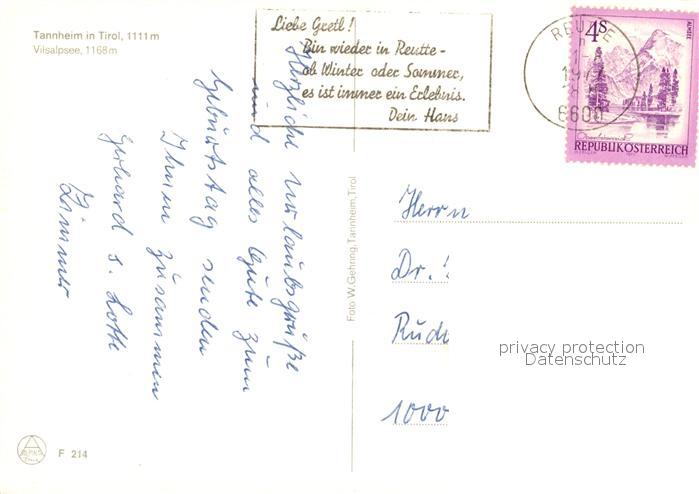 Tannheim in Tirol, 1111 m
Vilsalpsee, 1168 m
Liebe Gretl!
Bin wieder in Reutte -
ob Winter oder Sommer,
es ist immer ein Erlebnis.
Dein Hans
REUTTE
6600
4S
ALMSEE
REPUBLIK ÖSTERREICH
Herzliche Urlaubsgrüße
und alles Gute zum
Geburtstag senden
Ihnen zusammen
Gerhard u. Lotte
Zimmer
Foto W. Gehring, Tannheim, Tirol
Herrn
Dr.
Rud
1000
privacy protection
Datenschutz
F 214